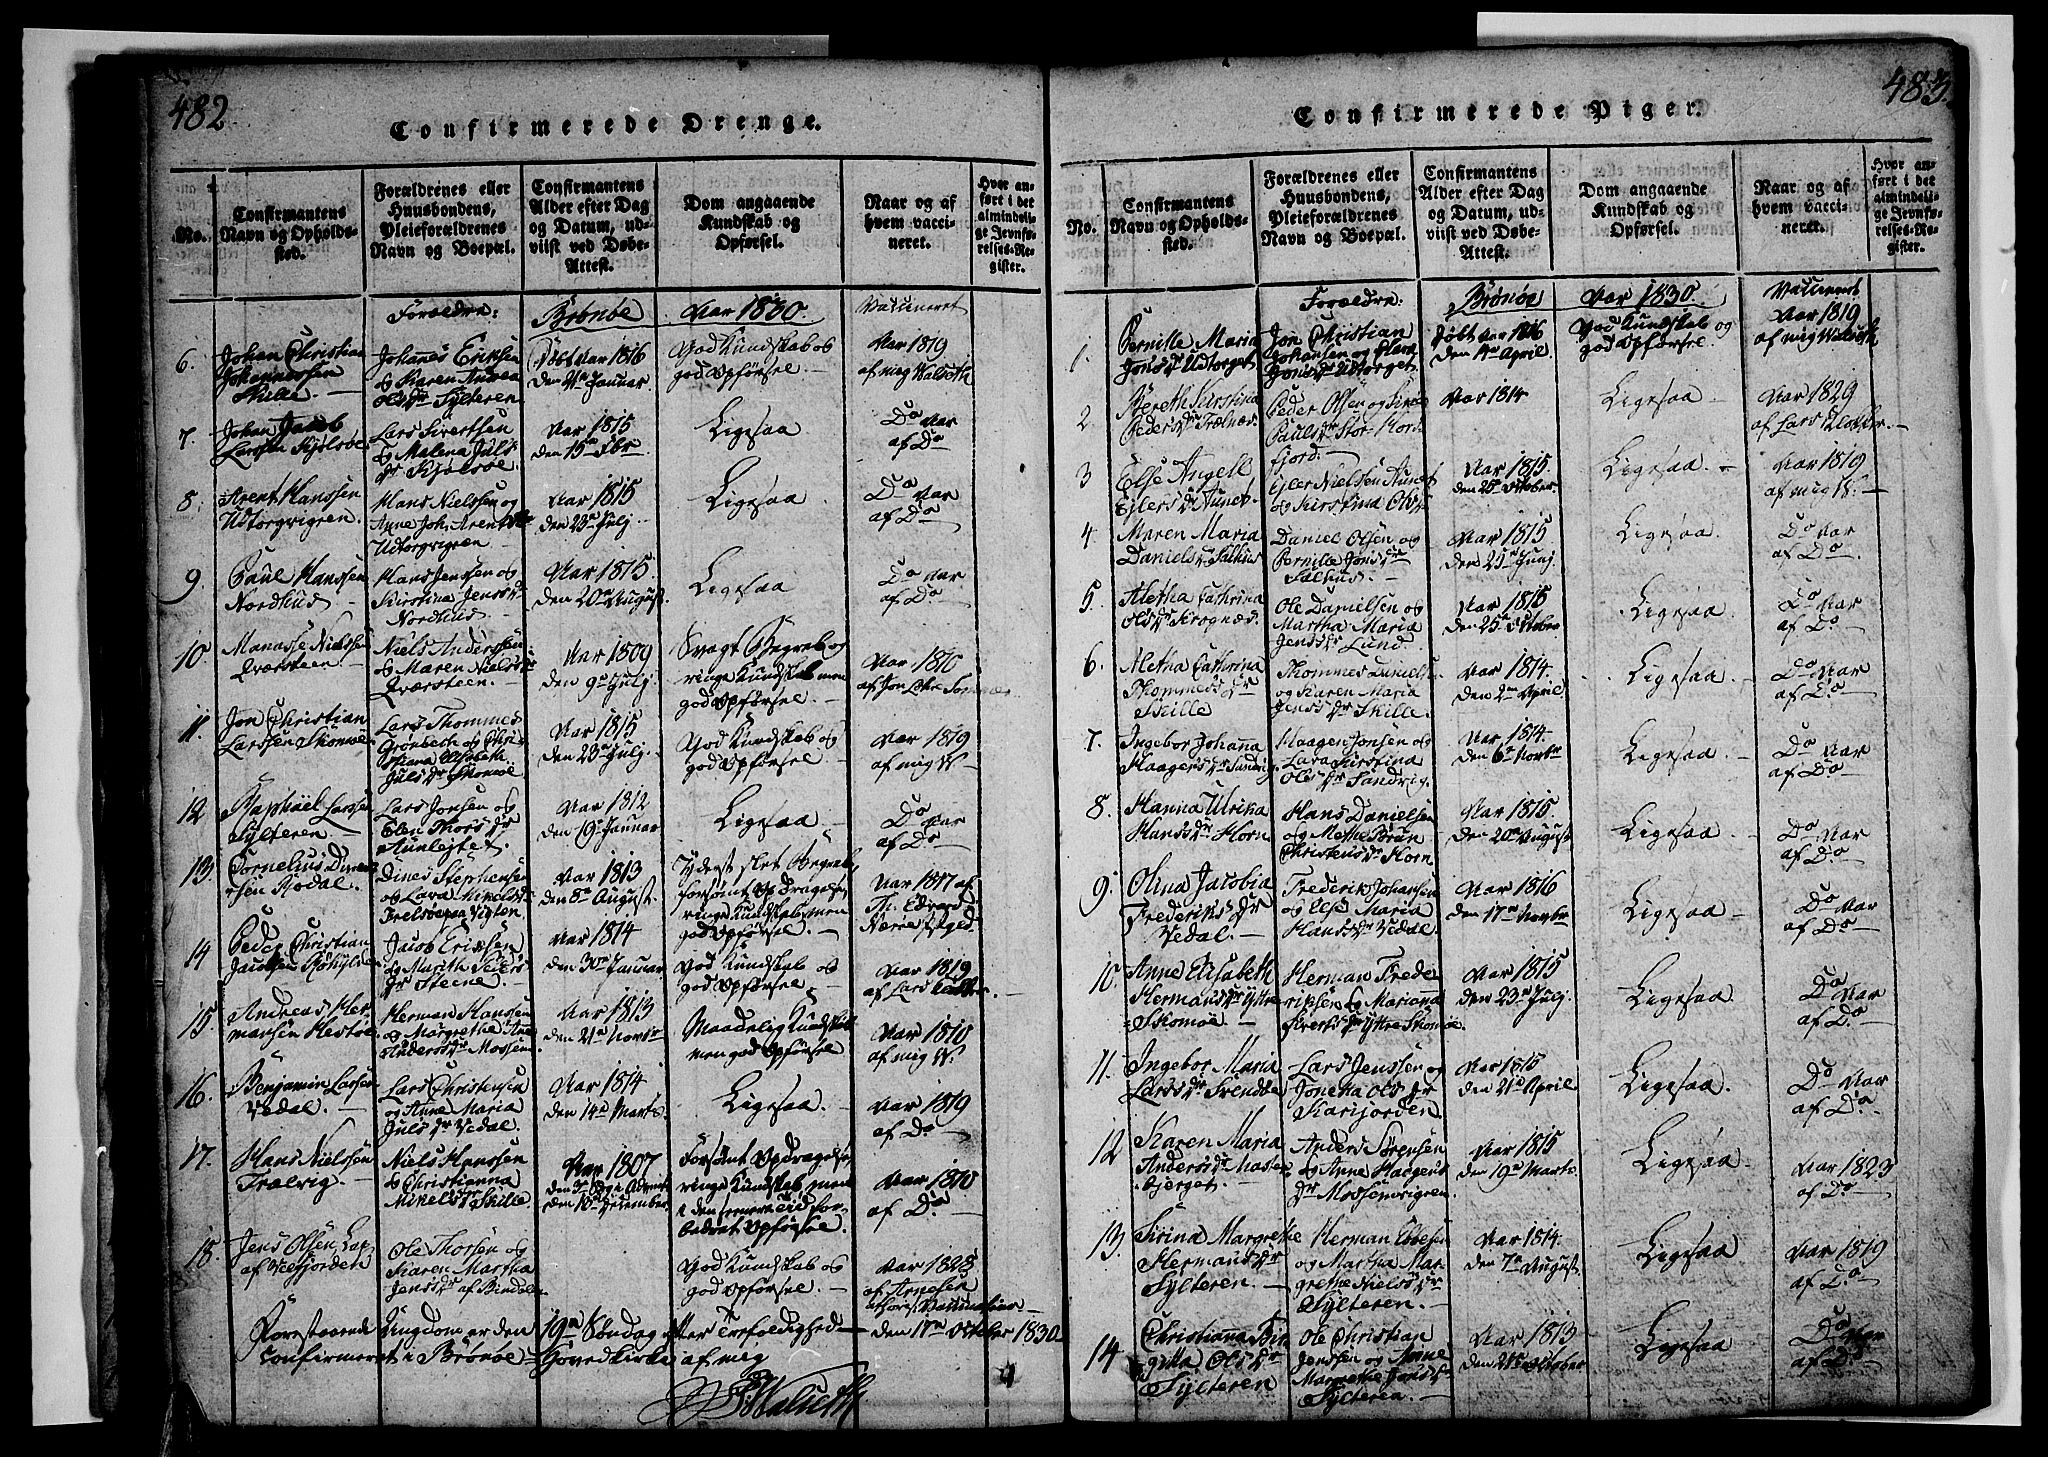 482
Confirmerede Drenge.
No.
Confirmantens
Navn og Opholds-
sted.
Forældrenes eller
Huusbondens,
Pleieforældrenes
Navn og Boepæl.
Confirmantens
Alder efter Dag
og Datum, ud-
viist ved Døbe-
Attest.
Dom angaaende
Kundskab og
Opførsel.
Naar og af
hvem vacci-
neret.
Hvor an-
ført i det
almindeli-
ge Jevnfø-
relses-Re-
gister.
Forældre:
Brønøe
Aar 1830.
Vaccineret
6.
Johan Christian
Johannessen
Skille
Johannes Eriksen
og Karen Andrea
Olsdr Sylteren
Født Aar 1816
den 21de Januar
God Kundskab og
god Opførsel
Aar 1819
af mig Walseth
7.
Johan Jacob
Larssen Kjølsøe
Lars Sivertsen
og Malena Juls
dr Kjølsøe
Aar 1815
den 15de
Ligesaa
Do Aar
af Do
8.
Arent Hanssen
Udtorgvigren.
Hans Nielssen og
Anne Joh. Arents
Udtorgvigren
Aar 1815
den 23de Julj
Ligesaa
Do Aar
af Do
9.
Paul Hanssen
Nordhus
Hans Jenssen og
Kirstina Jensdr
Nordhus
Aar 1815.
den 20de August.
Ligesaa
Do Aar
af Do
10.
Manasse Nielssen
Qværsteen
Niels Anderssen
og Maren Nielsdr
Qværsteen
Aar 1809
den 9de Julj
Svagt Begreb og
ringe Kundskab men
god Opførsel
Aar 1810
af Jon
11.
Jon Christian
Larssen Skomoe
Lars Thommes
Grønbech og Chri-
stiana Elisabeth
Julsdr Skomoe
Aar 1815
den 23de Julj
God Kundskab og
god Opførsel
Aar 1819
af mig W
12
Raphael Larssen
Sylteren
Lars Jonsen og
Elen Thorsdr
Aunlejtet.
Aar 1812
den 19de Januar
Ligesaa
Do Aar
af Do
13.
Cornelius Dines-
sen Rodal
Dines Stephensen
og Lava Mikelsdr
Vigten
Aar 1813
den 8de August
Yderst slet Begreb,
forsømt Opdragelse,
ringe Kundskab, men
god Opførsel
Aar 1817 af
Th. Edvard
14
Peder Christian
Jacobsen
Jacob Eriksen
og Marith Peders
dr Steene
Aar 1814
den 30te Januar
God Kundskab og
god Opførsel.
Aar 1819
af Lars
15.
Andreas Her-
mansen
Herman Hanssen
og Margrethe
Andersdr Mossem
Aar 1813
den 21de Novbr
Maadelig Kundskab
men god Opførsel
Aar 1810
af mig W
16.
Benjamin Larsen
Vedal
Lars Christensen
og Anne Maria
Julsdr Vedal
Aar 1814
den 14de Marts
Ligesaa
Aar 1819
af Do
17.
Hans Nielssen
Trælvig
Niels Hanssen
og Christianna
Mikelsdr Skille
Aar 1807
den 3die Søg i Advent
den 10de December
Forsømt Opdragelse,
ringe Kundskab, men
i den senere Tid for-
bedret Opførsel
Aar 1810
af Do
18.
Jens Olsen Lap
af Velfjordet
Ole Thorsen og
Karen Martha
Jensdr af Bindalen
God Kundskab og
god Opførsel.
Aar 1828
af Arnesen
Forestaaende Ungdom er den 19de Søndag efter Trefoldighed den 17de October 1830
confirmeret i Brønøe Hovedkirke af mig
Walseth
483.
Confirmerede Piger.
No.
Confirmantens
Navn og Opholds-
sted.
Forældrenes eller
Huusbondens,
Pleieforældrenes
Navn og Boepæl.
Confirmantens
Alder efter Dag
og Datum, ud-
viist ved Døbe-
Attest.
Dom angaaende
Kundskab og
Opførsel.
Naar og af
hvem vacci-
neret.
Hvor an-
ført i det
almindeli-
ge Jevnfø-
relses-Re-
gister.
Forældre:
Brønøe
Aar 1830.
Vaccineret
1.
Pernille Maria
Jonsdr Udtorget
Jon Christian
Johansen og
Jonsdr Udtorget
Født Aar 1816
den 14de April
God Kundskab og
god Opførsel
Aar 1819
af mig Walseth
2
Bereth Kirstina
Pedersdr Trælnæs
Peder Olsen og
Paulsdr Stor-Hord-
fjord.
Aar 1814
Ligesaa
Aar 1829
af Lars
3
Else Angell
Ejlersdr Aunet.
Ejler Nielsen Aunet
og Kirstina Olsdr
Aar 1815.
den 25de October.
Ligesaa
Aar 1819
af mig W.
4.
Maren Maria
Danielsdr Salhus
Daniel Olsen og
Pernille Jonsdr
Salhus
Aar 1815
den 25de Junj.
Ligesaa
Do Aar
af Do
5.
Aletha Cathrina
Olsdr Krognæs.
Ole Danielsen og
Martha Maria
Jensdr Lund
Aar 1815
den 25de October
Ligesaa
Do Aar
af Do
6.
Aletha Cathrina
Thommesdr
Skille
Thommes Danielss.
og Karen Maria
Jensdr Skille
Aar 1814.
den 2den April
Ligesaa
Do Aar
af Do
7.
Ingebor Johanna
Haagensdr Sandvig.
Haagen Jonsen og
Lava Kirstina
Olsdr Sandvig
Aar 1814.
den 6te Novbr
Ligesaa
Do Aar
af Do
8.
Hanna Ulrika
Hansdr Horn
Hans Danielsen
og Mette Sørin
Christensdr Horn
Aar 1815.
den 20de August
Ligesaa
Do Aar
af Do
9.
Olina Jacobia
Frederiksdr
Vedal
Frederik Johansen
og Else Maria
Hansdr Vedal
Aar 1816
den 17de Novbr
Ligesaa
Do Aar
af Do
10.
Anne Elisabeth
Hermansdr Yttre
Skomoe
Herman Frede
riksen og Marianna
Sivertsdr Yttre Skomoe
Aar 1815
den 23de Julj
Ligesaa
Do Aar
af Do
11.
Ingebor Maria
Larsdr
Lars Jenssen og
Jonetta Olsdr
Karijorden
Aar 1815
den 21de April
Ligesaa
Do Aar
af Do
12
Karen Maria
Andersdr Mossem-
bjerget
Anders Sørensen
og Anne Haagens
dr Mossemvigren.
Aar 1815
den 19de Marts
Ligesaa
Aar 1823
af Do
13.
Sirina Margrethe
Hermansdr
Sylteren
Herman
og Martha Mar-
grethe Nielsdr
Sylteren
Aar 1814
den 7de August
Ligesaa
Aar 1819
af Do
14.
Christiana Bir-
gitta Olsdr
Sylteren
Ole Christian
Jensen og Anne
Margrethe Jonsdr
Sylteren
Aar 1813
den 21de October
Ligesaa
Do Aar
af Do